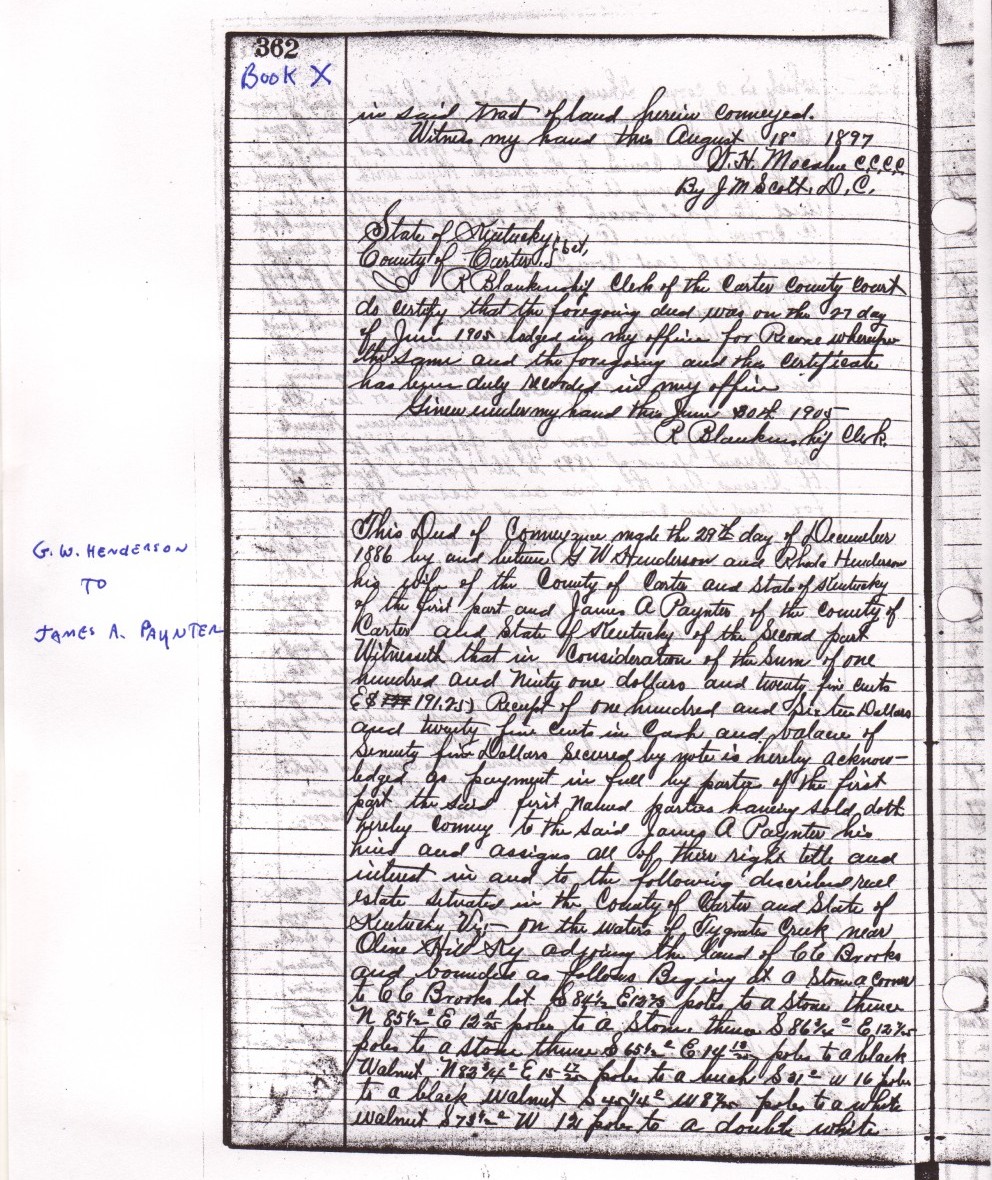 362
Book X
in said tract of land herein conveyed.
Witness my hand this August 18" 1897
C.C.C.C.
By J M Scott. D. C.
State of Kentucky
County of Carter.
I R Blankenship Clerk of the Carter County Court
do certify that the foregoing deed was on the 27 day
of June 1905 lodged in my office for Record whereupon
the same and the foregoing and this certificate
has been duly recorded in my office
Given under my hand this June 30th 1905
R Blankenship Clerk.
G. W. HENDERSON
TO
JAMES A. PAYNTER
This Deed of Conveyance made the 29th day of December
1886 by and between G W Henderson and Rhoda Henderson
his wife of the County of Carter and State of Kentucky
of the first part and James A Paynter of the county of
Carter and State of Kentucky of the Second part
Witnesseth that in Consideration of the Sum of one
hundred and Ninty one dollars and twenty five cents
191.25) Receipt of one hundred and sixteen Dollars
and twenty five cents in Cash and balance of
Seventy five Dollars secured by note is hereby acknow-
ledged as payment in full by parties of the first
part the said first named parties having sold doth
hereby convey to the said James A Paynter his
heirs and assigns all of their right title and
interest in and to the following described real
estate situated in the County of Carter and State of
Kentucky Viz:- on the waters of Tygrates Creek near
Olive Hill Ky adjoing the land of C C Brooks
and bounded as follows Begining at a Stone a corner
to C C Brooks lot S 84½ E poles to a Stone thence
N 85½° E 12 poles to a Stone thence S 86¾° E
poles to a stone thence S 65½° E 14 poles to a black
Walnut N 83¾° E 15 poles to a buch S 31° W 16 poles
to a black walnut W poles to a white
walnut S 73½° W 12 poles to a double white